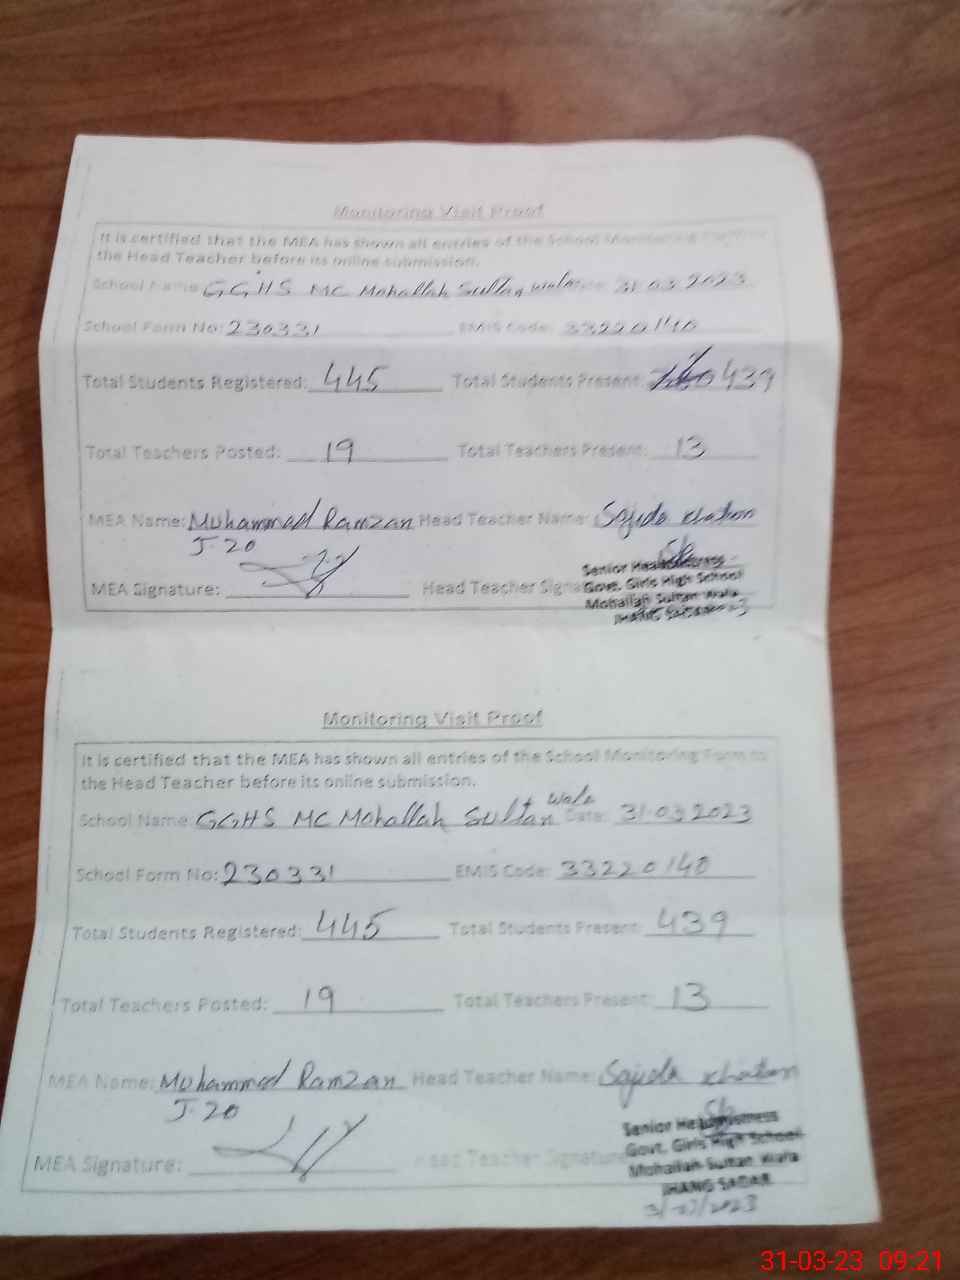 Monitoring Visit Proof
It is certified that the MEA has shown all entries of the School Monitoring Form to
the Head Teacher before its online submission.
School Name: GGHS MC Mohallah Sultan wala Date: 31.03.2023
School Form No: 230331 EMIS Code: 33220140
Total Students Registered: 445 Total Students Present: 439
Total Teachers Posted: 19 Total Teachers Present: 13
MEA Name: Muhammad Ramzan Head Teacher Name: Sajida Khatoon
J-20
MEA Signature: Head Teacher
Senior Headmistress
Govt. Girls High School
Mohallah Sultan Wala
JHANG SADAR
Monitoring Visit Proof
It is certified that the MEA has shown all entries of the School Monitoring Form to
the Head Teacher before its online submission.
School Name: GGHS MC Mohallah Sultan wala Date: 31.03.2023
School Form No: 230331 EMIS Code: 33220140
Total Students Registered: 445 Total Students Present: 439
Total Teachers Posted: 19 Total Teachers Present: 13
MEA Name: Muhammad Ramzan Head Teacher Name: Sajida Khatoon
J-20
MEA Signature: Head Teacher Signature
Senior Headmistress
Govt. Girls High School
Mohallah Sultan Wala
JHANG SADAR
31-03-23 09:21